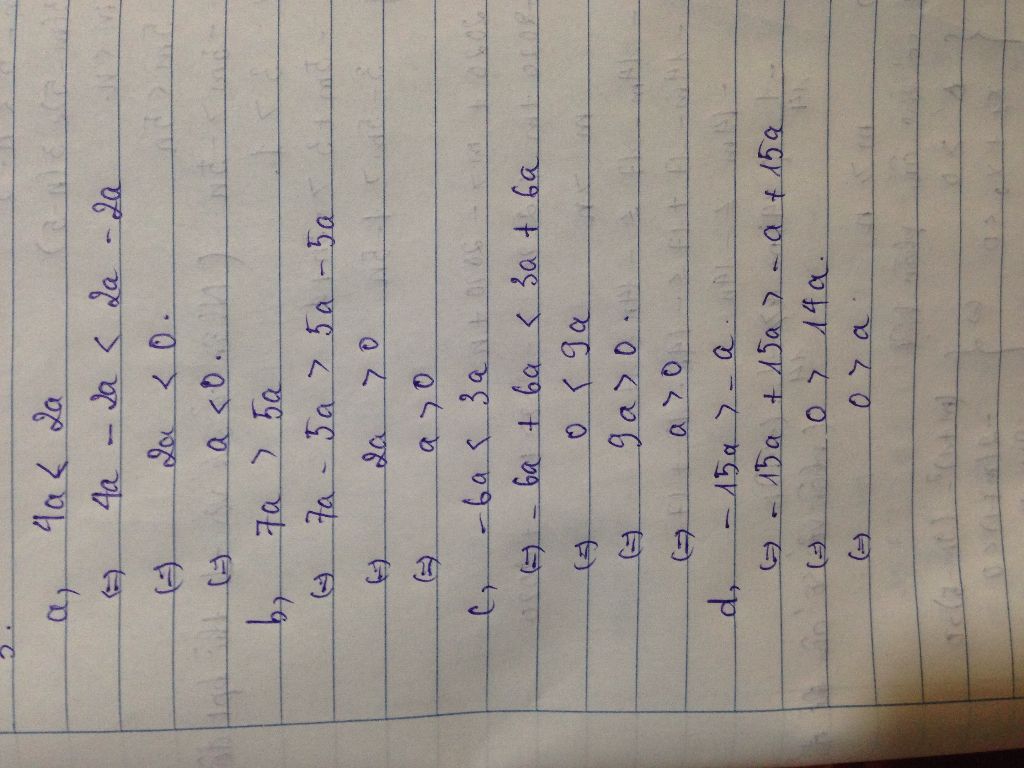 a, 4a < 2a
(=) 4a - 2a < 2a - 2a
(=) 2a < 0.
(=) a < 0.
b, 7a > 5a
(=) 7a - 5a > 5a - 5a
(=) 2a > 0
(=) a > 0
c, - 6a < 3a
(=) - 6a + 6a < 3a + 6a
(=) 0 < 9a
(=) 9a > 0.
(=) a > 0
d, - 15a > - a.
(=) - 15a + 15a > - a + 15a
(=) 0 > 14a.
(=) 0 > a.